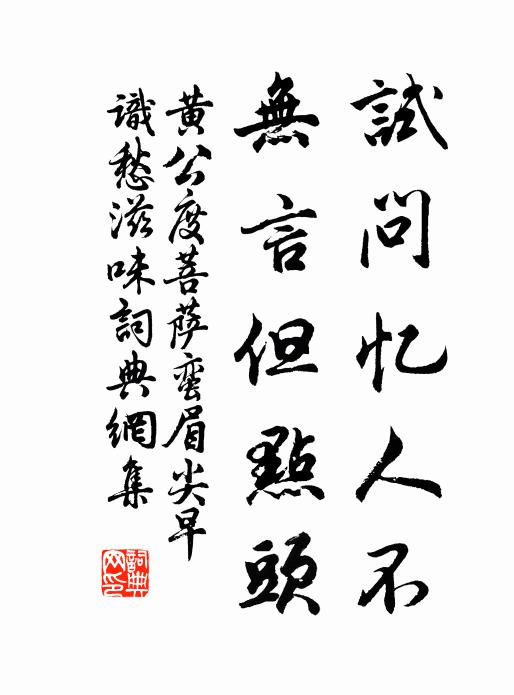 試問忆人不
無言但點頭
黄公度菩萨蛮眉尖早
識愁滋味詞典網集
詞典網印